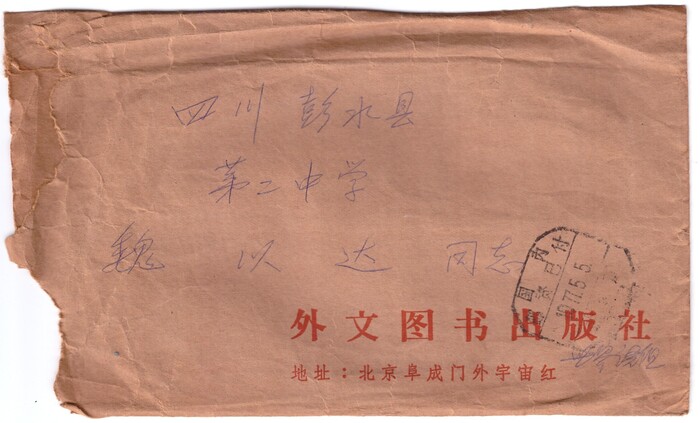 四川 彭水县
第二中学
魏 以 达 同志
国内
邮资已付
1977.5.5
外文图书出版社
世界语组
地址：北京阜成门外宇宙红